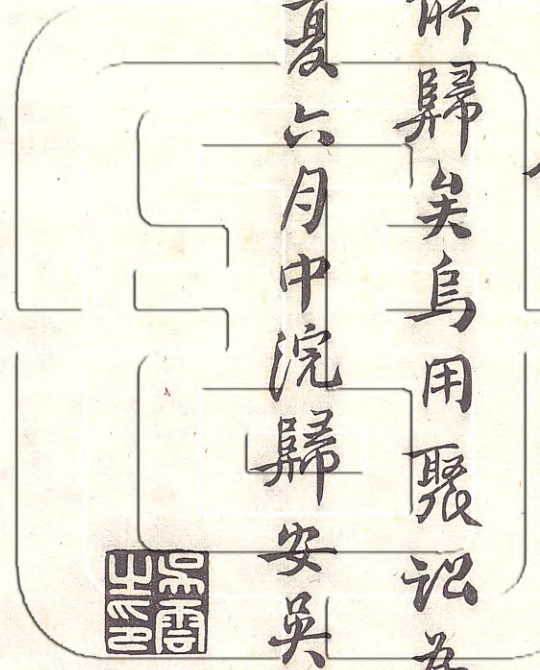 所歸矣烏用聚訟為
夏六月中浣歸安吳
吳雲之印